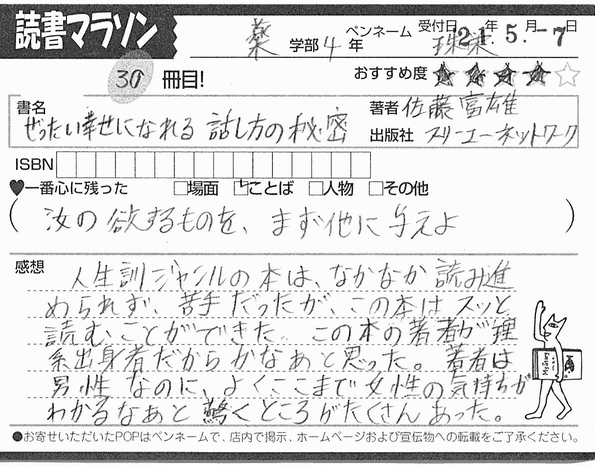 読書マラソン
薬 学部 4 年 ペンネーム 珠来 受付日 21年 5.月-7日
30 冊目! おすすめ度 ★★★★☆
書名 ぜったい幸せになれる 話し方の秘密
著者 佐藤富雄
出版社 スリーエーネットワーク
ISBN
♥一番心に残った □場面 ☑ことば □人物 □その他
(汝の欲するものを、まず他に与えよ)
感想
人生訓ジャンルの本は、なかなか読み進
められず、苦手だったが、この本はスッと
読むことができた。この本の著者が理
系出身者だからかなあと思った。著者は
男性なのに、よくここまで女性の気持ちが
わかるなあと驚くところがたくさんあった。
●お寄せいただいたPOPはペンネームで、店内で掲示、ホームページおよび宣伝物への転載をご了承ください。